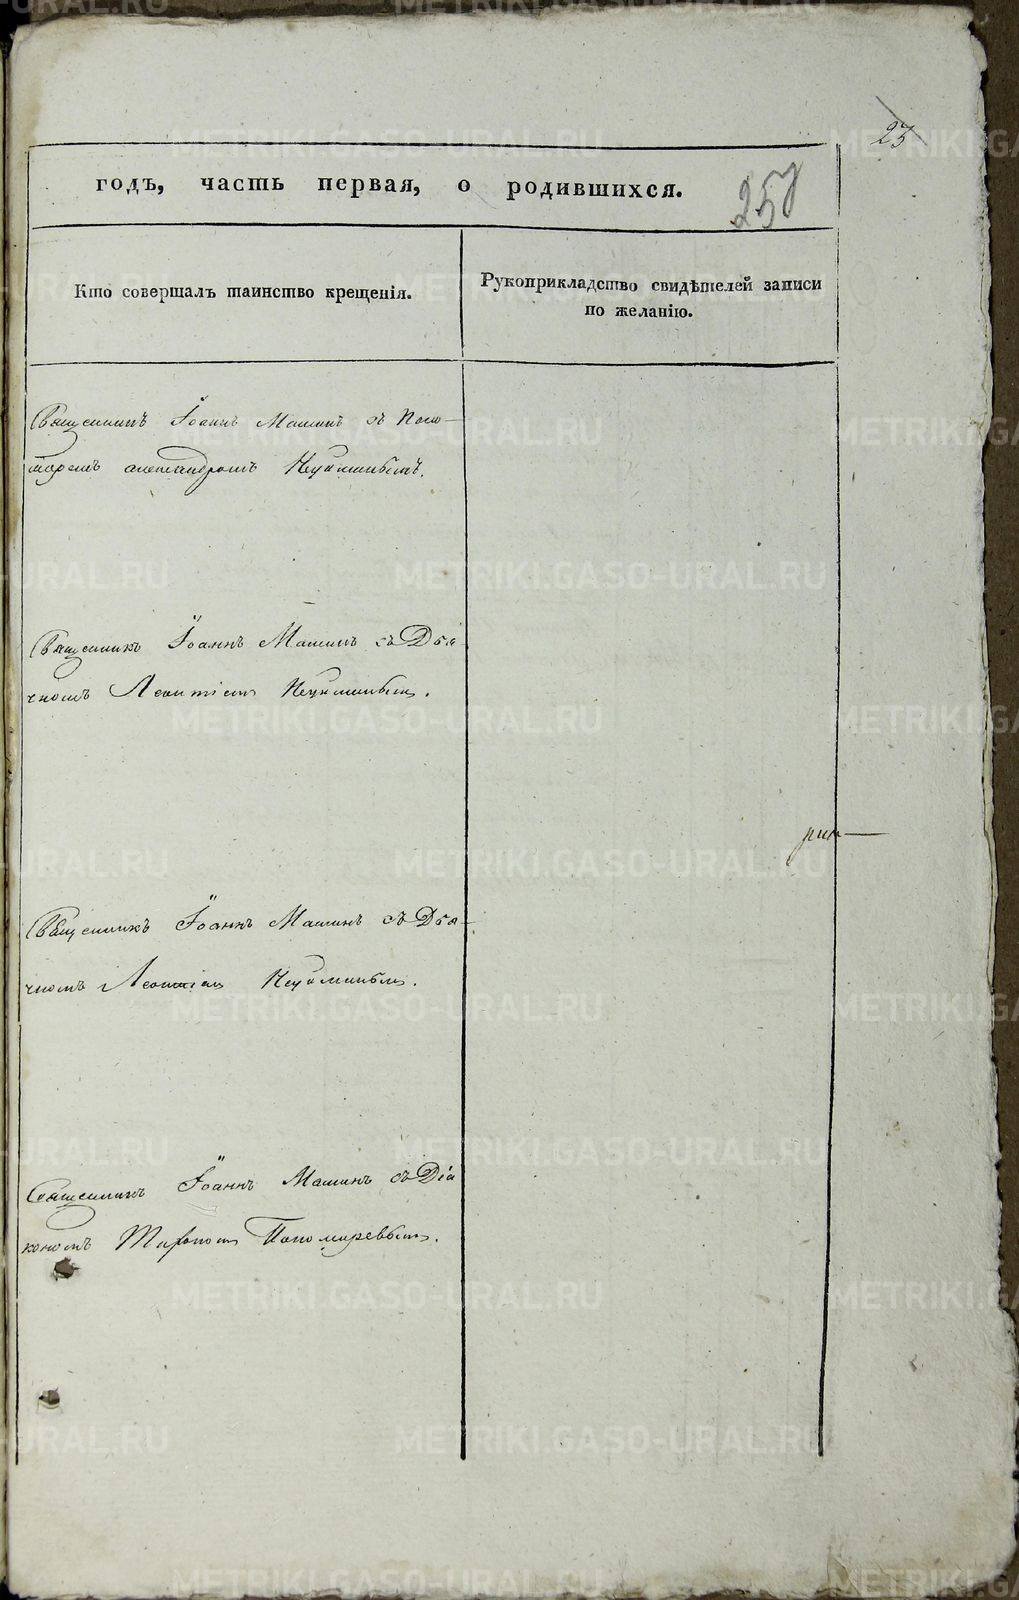 23
годъ, часть первая, о родившихся.
257
Кто совершалъ таинство крещенія.
Рукоприкладство свидѣтелей записи
по желанію.
Священникъ Іоаннъ Машинъ съ Поно-
маремъ Александромъ Неуйминымъ.
Священникъ Іоаннъ Машинъ съ Дья
чкомъ Леонтіемъ Неуйминымъ.
Священникъ Іоаннъ Машинъ съ Дья-
чкомъ Леонтіем Неуйминымъ.
Священникъ Іоаннъ Машинъ съ Діа
кономъ Пономаревымъ.
METRIKI.GASO-URAL.RU